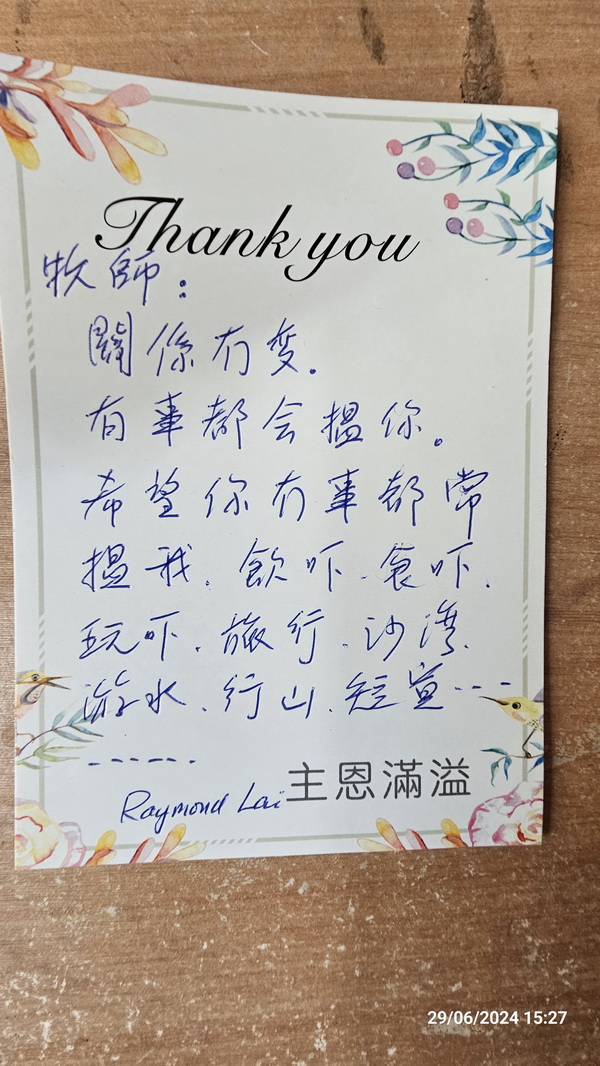 Thank you
牧師：
關係冇变.
有事都会搵你。
希望你冇事都常
搵我. 飲吓. 食吓.
玩吓. 旅行. 沙湾.
游水. 行山. 短宣---
------
Raymond Lai
主恩滿溢
29/06/2024 15:27